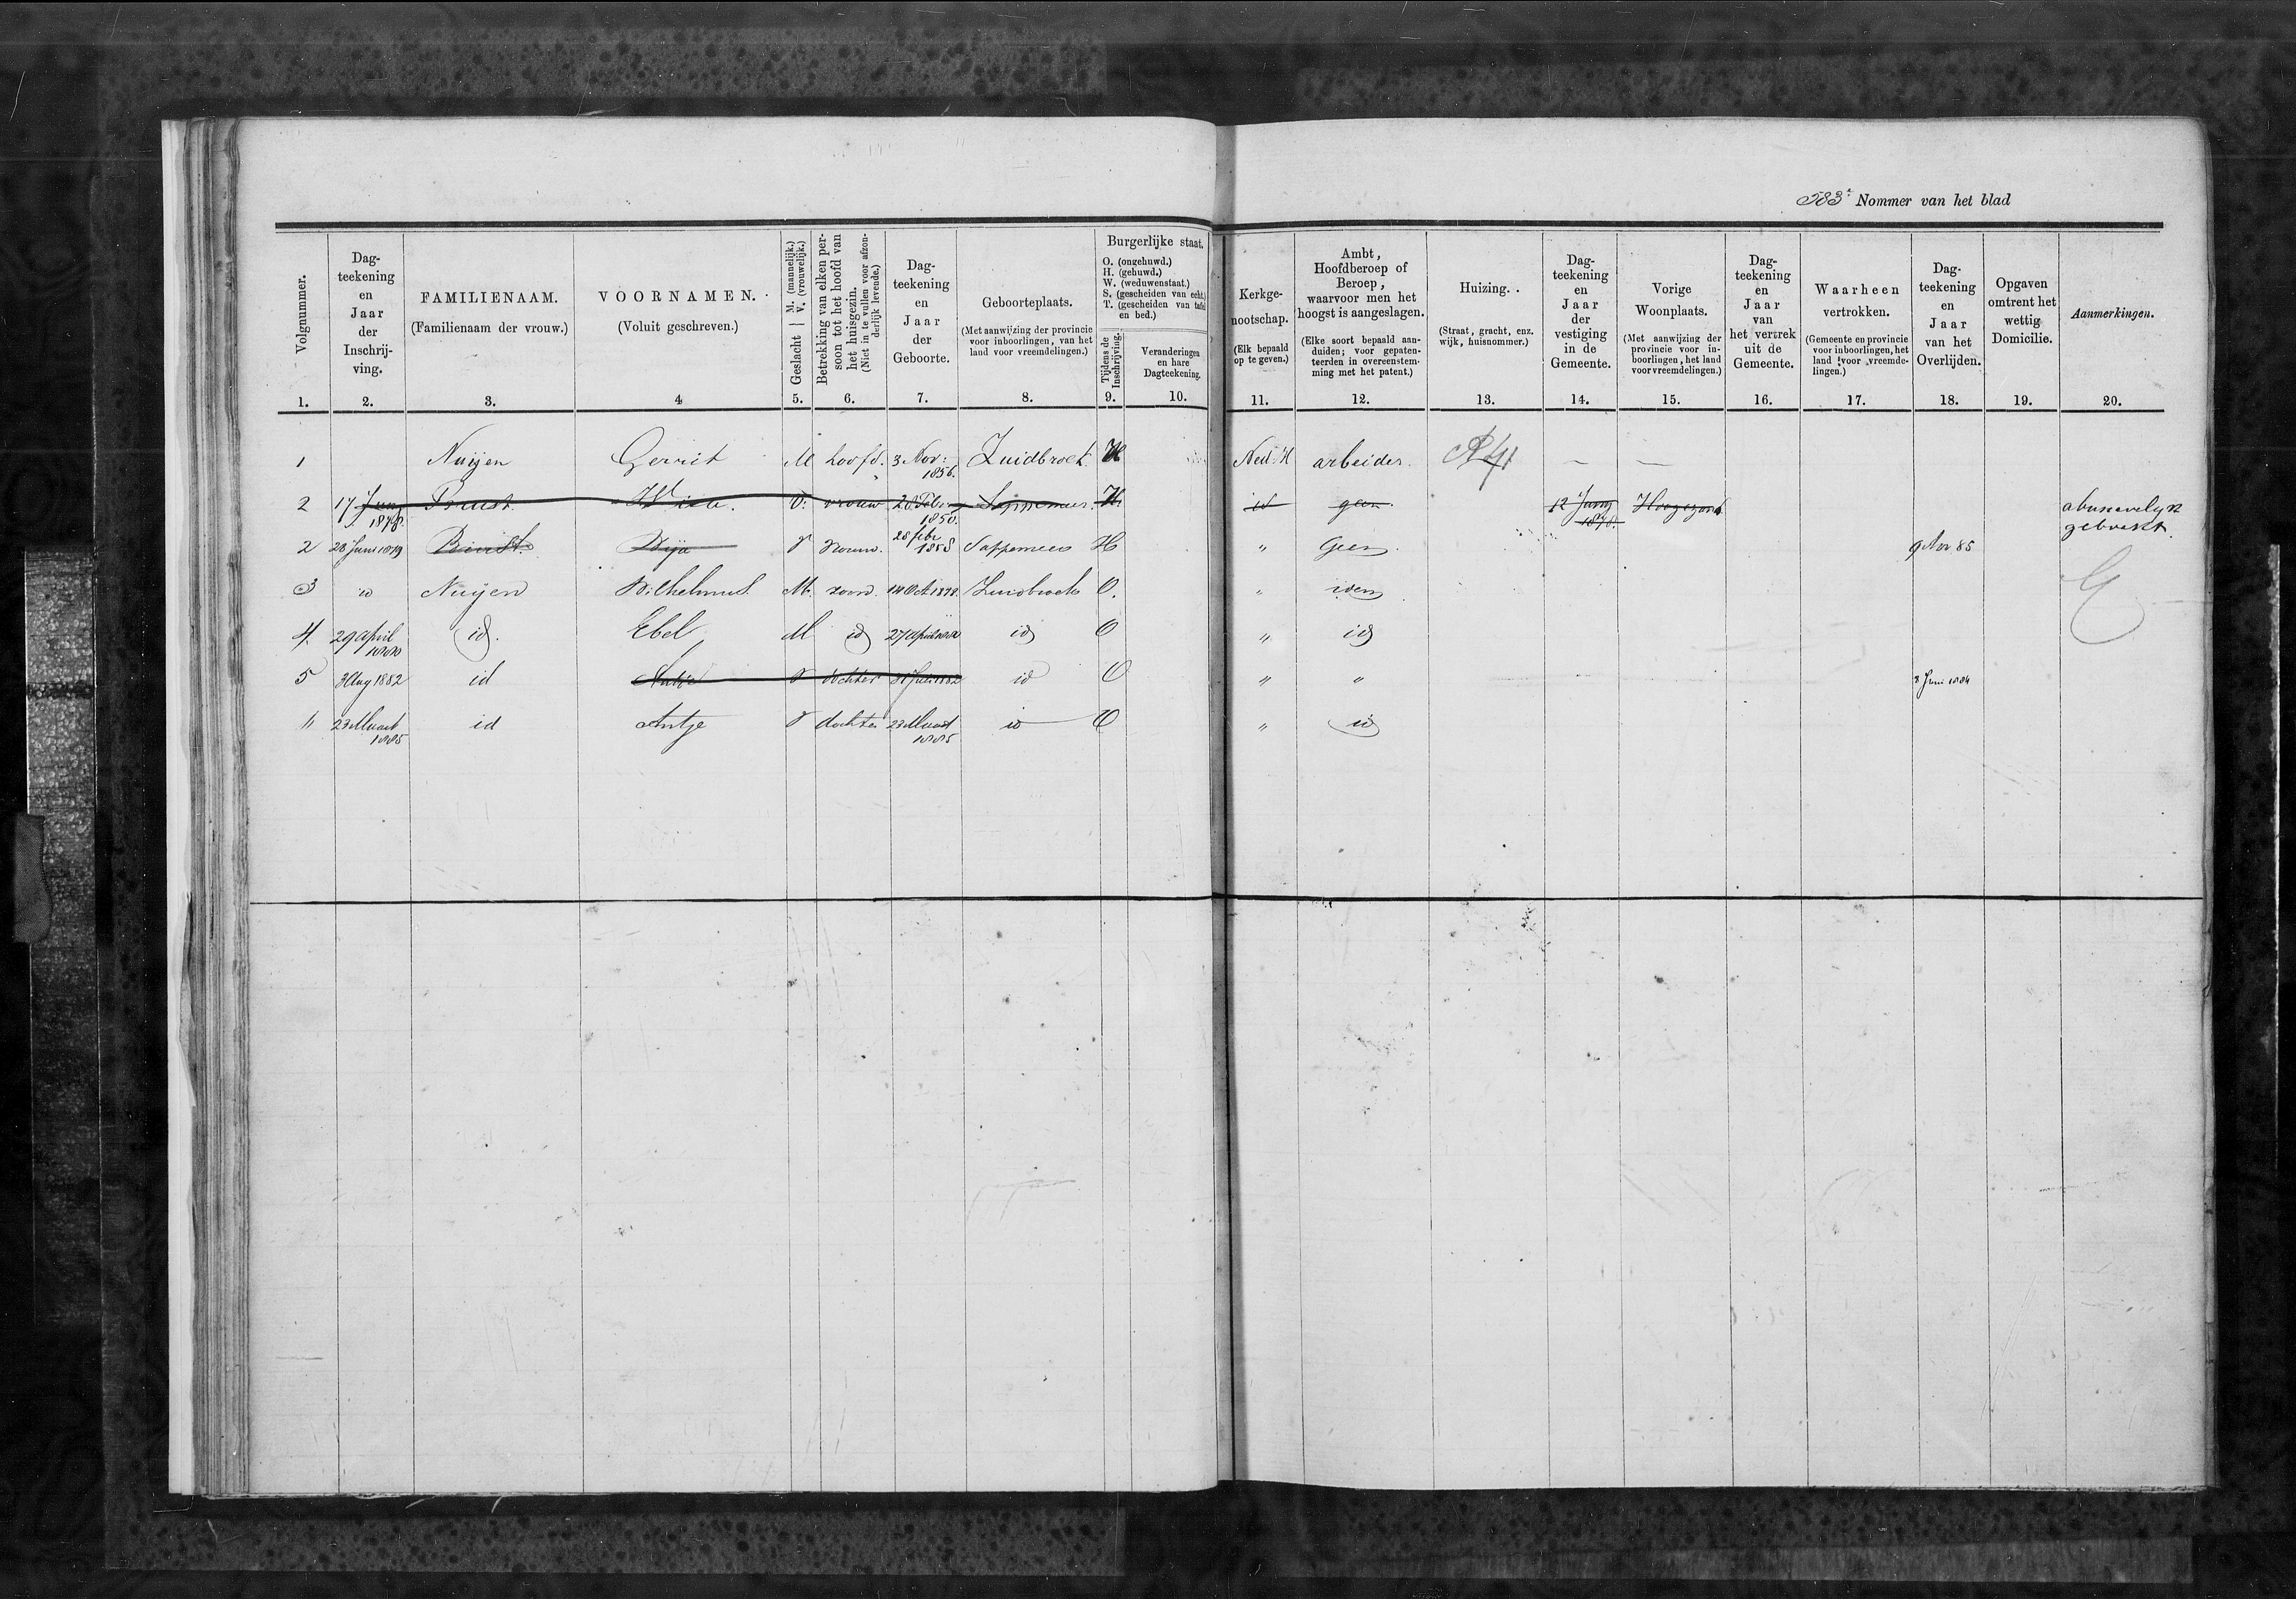 583² Nommer van het blad
Volgnummer.
Dag-
teekening
en
Jaar
der
Inschrij-
ving.
FAMILIENAAM.
(Familienaam der vrouw.)
VOORNAMEN.
(Voluit geschreven.)
Geslacht { M. (mannelijk.)
V. (vrouwelijk.)
Betrekking van elken per-
soon tot het hoofd van
het huisgezin.
(Niet in te vullen voor afzon-
derlijk levende.)
Dag-
teekening
en
Jaar
der
Geboorte.
Geboorteplaats.
(Met aanwijzing der provincie
voor inboorlingen, van het
land voor vreemdelingen.)
Burgerlijke staat.
O. (ongehuwd.)
H. (gehuwd.)
W. (weduwenstaat.)
S. (gescheiden van echt.)
T. (gescheiden van tafel
en bed.)
Tijdens de
Inschrijving.
Veranderingen
en hare
Dagteekening.
Kerkge-
nootschap.
(Elk bepaald
op te geven.)
Ambt,
Hoofdberoep of
Beroep,
waarvoor men het
hoogst is aangeslagen.
(Elke soort bepaald aan-
duiden; voor gepaten-
teerden in overeenstem-
ming met het patent.)
Huizing.
(Straat, gracht, enz.
wijk, huisnommer.)
Dag-
teekening
en
Jaar
der
vestiging
in de
Gemeente.
Vorige
Woonplaats.
(Met aanwijzing der
provincie voor in-
boorlingen, het land
voor vreemdelingen.)
Dag-
teekening
en
Jaar
van
het vertrek
uit de
Gemeente.
Waarheen
vertrokken.
(Gemeente en provincie
voor inboorlingen, het
land voor vreemde-
lingen.)
Dag-
teekening
en
Jaar
van het
Overlijden.
Opgaven
omtrent het
wettig
Domicilie.
Aanmerkingen.
1. 2. 3. 4 5. 6. 7. 8. 9. 10. 11. 12. 13. 14. 15. 16. 17. 18. 19. 20.
1 Nuijen Gerrit M hoofd. 3 Nov: 1856. Zuidbroek H Ned. H arbeider. — —
2 17 Juny 1878. V: vrouw 28 Feb: 1850. Sappemeer H. id geen 12 Juny 1878. Hoogezand abusievelijk
geboekt.
2 28 Juni 1879 V vrouw. 28 febr 1858 Sappemeer H " Geen 9 Apr 85
3 id Nuijen Wilhelmus M. zoon. Oct 1878. Zuidbroek O. " idem
4 29 April 1880 id. Ebel M id 27 April 1880 id O " id
5 3 Aug 1882 id Antje V dochter 31 Juli 1882 id O " " 3 Juni 1884
" 23 Maart 1885 id Antje V dochter 23 Maart 1885 id O " id